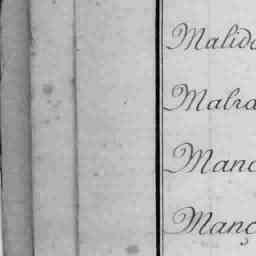 Malid
Malra
Manc
Manç